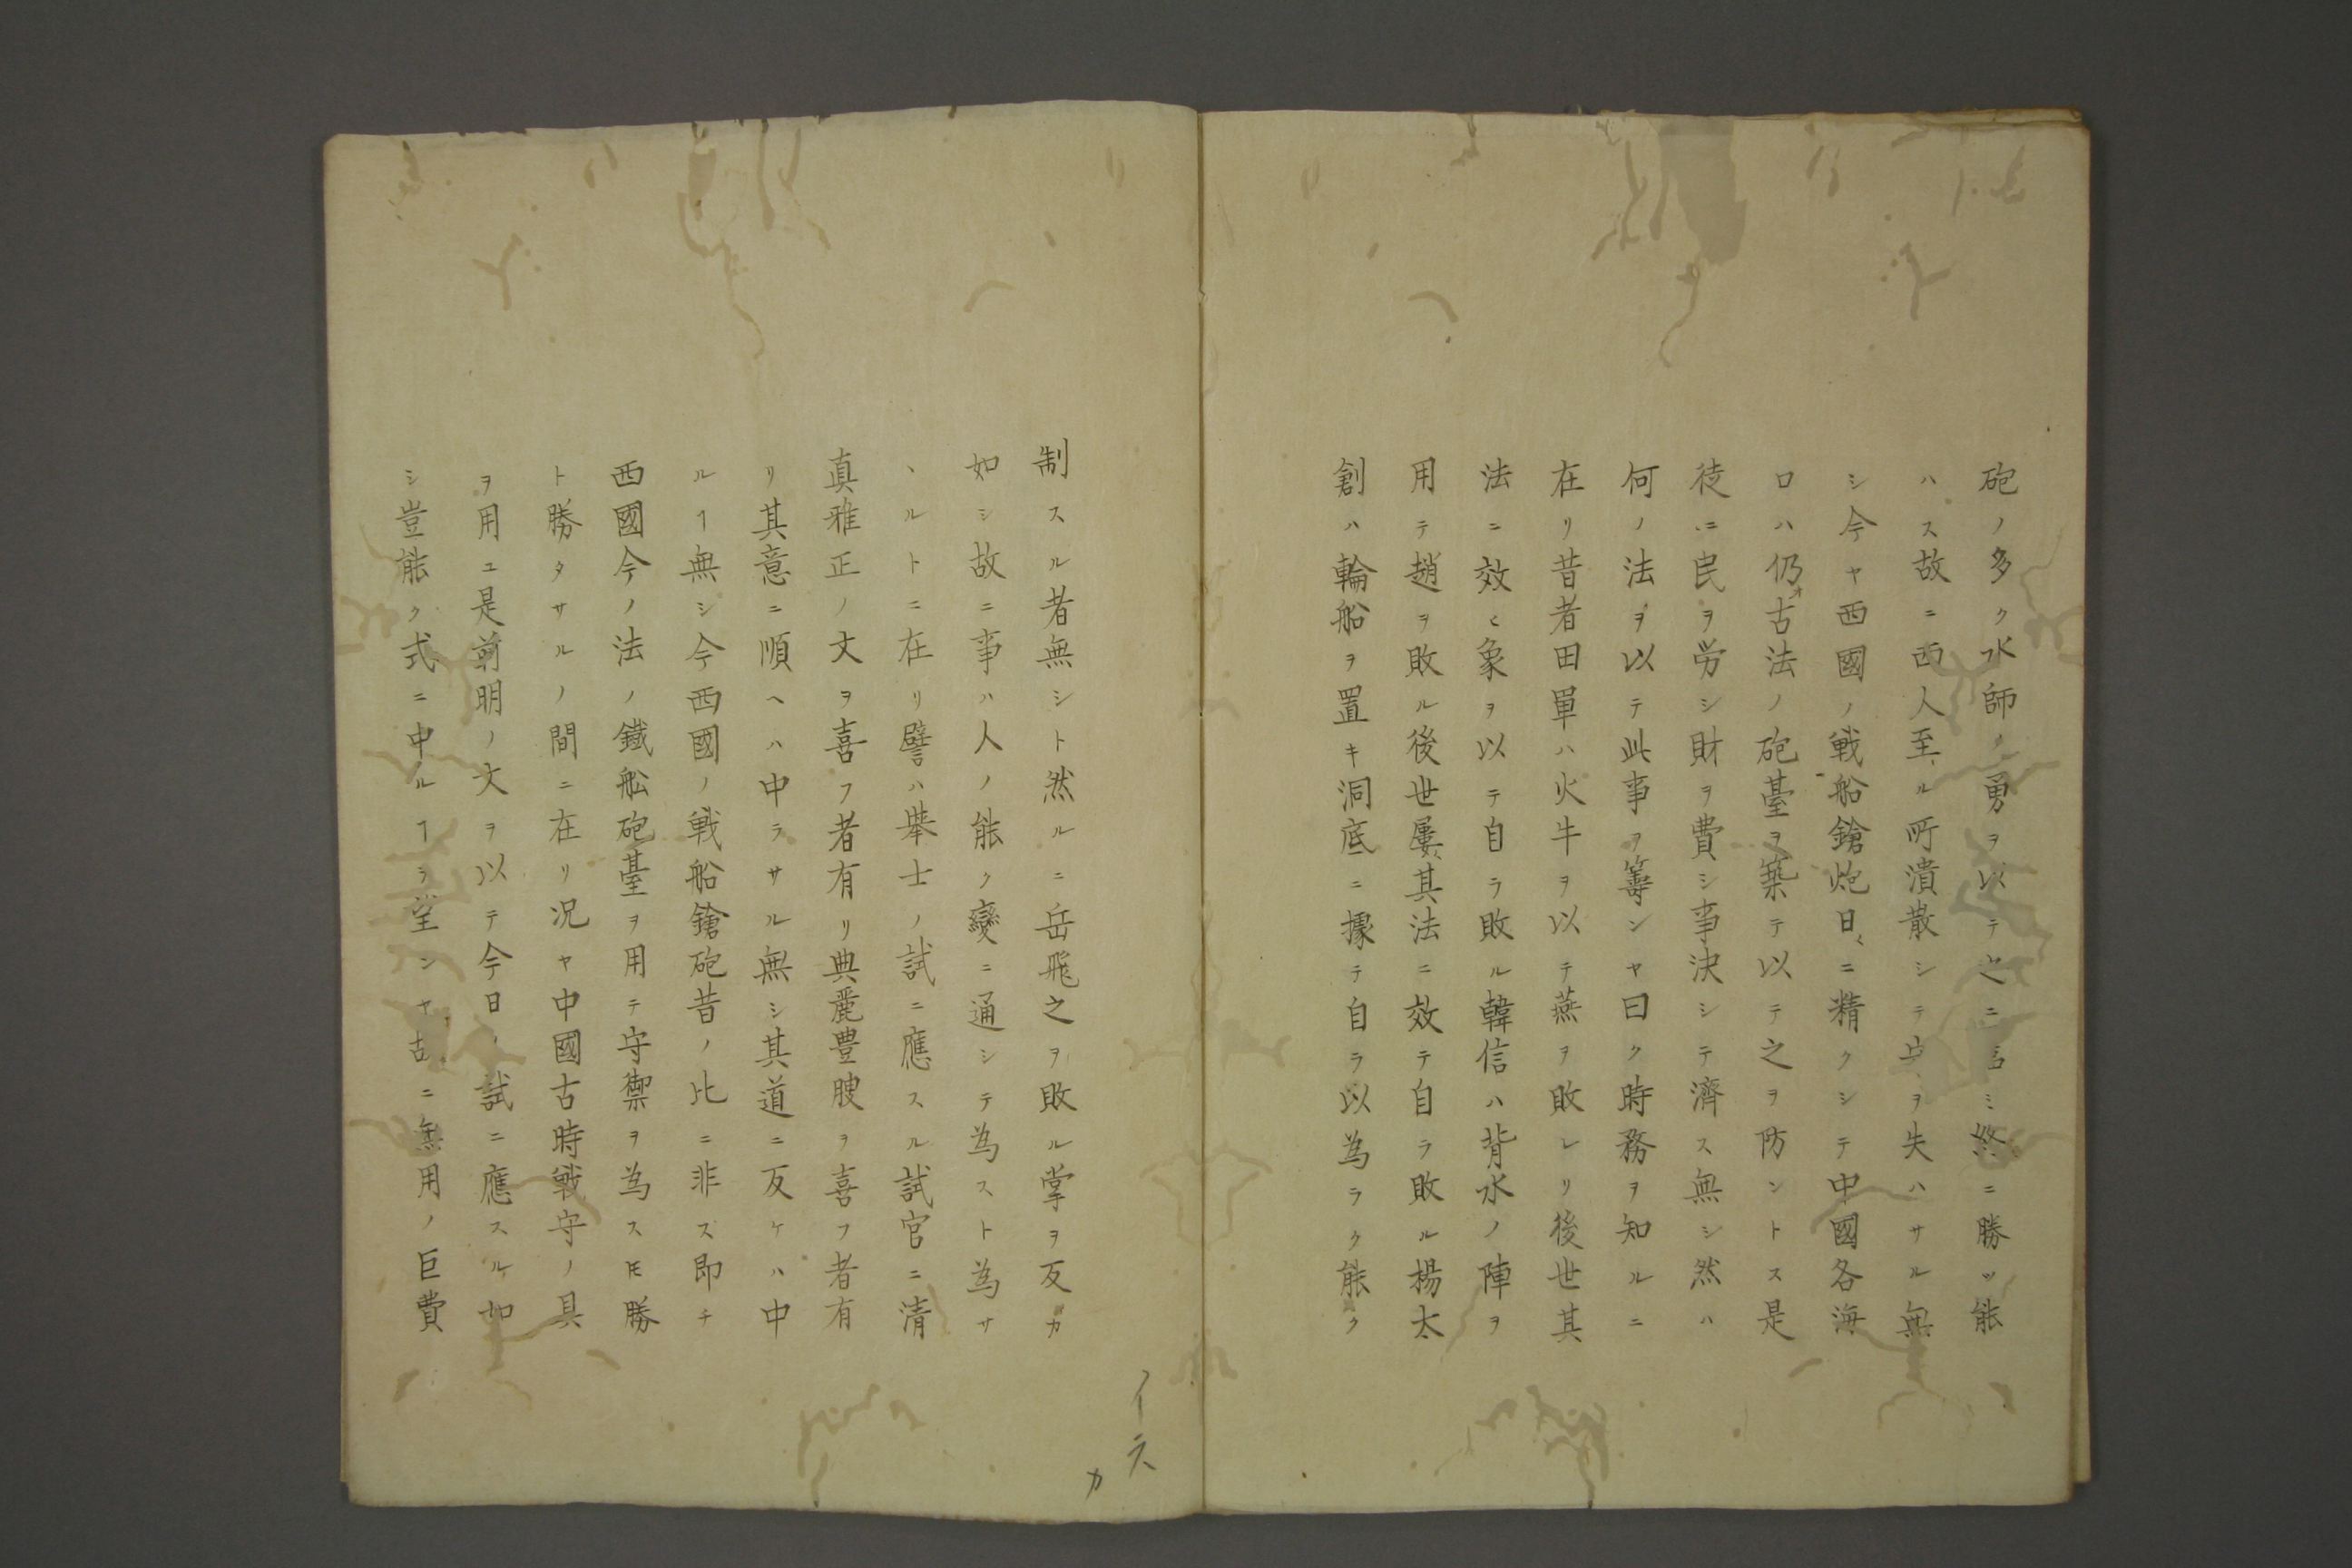 砲ノ多ク水師ノ勇ヲ以テ之ニ臨ミ終ニ勝ツ能
ハス故ニ西人至ル所潰散シテ守ヲ失ハサル無
シ今ヤ西國ノ戦船鎗炮日々ニ精クシテ中國各海
口ハ仍古法ノ砲臺ヲ築テ以テ之ヲ防ントス是
徒ニ民ヲ労シ財ヲ費シ事決シテ濟ス無シ然ハ
何ノ法ヲ以テ此事ヲ籌ンヤ曰ク時務ヲ知ルニ
在リ昔者田単ハ火牛ヲ以テ燕ヲ敗レリ後世其
法ニ效ヒ象ヲ以テ自ラ敗ル韓信ハ背水ノ陣ヲ
用テ趙ヲ敗ル後世屢其法ニ效テ自ラ敗ル楊太
創ハ輪船ヲ置キ洞底ニ據テ自ラ以為ラク能ク
制スル者無シト然ルニ岳飛之ヲ敗ル掌ヲ反カ
如シ故ニ事ハ人ノ能ク變ニ通シテ為スト為サ
ヽルトニ在リ譬ハ擧士ノ試ニ應スル試官ニ清
真雅正ノ文ヲ喜フ者有リ典麗豊腴ヲ喜フ者有
リ其意ニ順ヘハ中ラサル無シ其道ニ反ケハ中
ルヿ無シ今西國ノ戦船鎗砲昔ノ比ニ非ス即チ
西國今ノ法ノ鐵船砲臺ヲ用テ守禦ヲ為スモ勝
ト勝タサルノ間ニ在リ况ヤ中國古時戦守ノ具
ヲ用ユ是前明ノ文ヲ以テ今日ノ試ニ應スル如
シ豈能ク式ニ中ルヿヲ望ンヤ故ニ無用ノ巨費